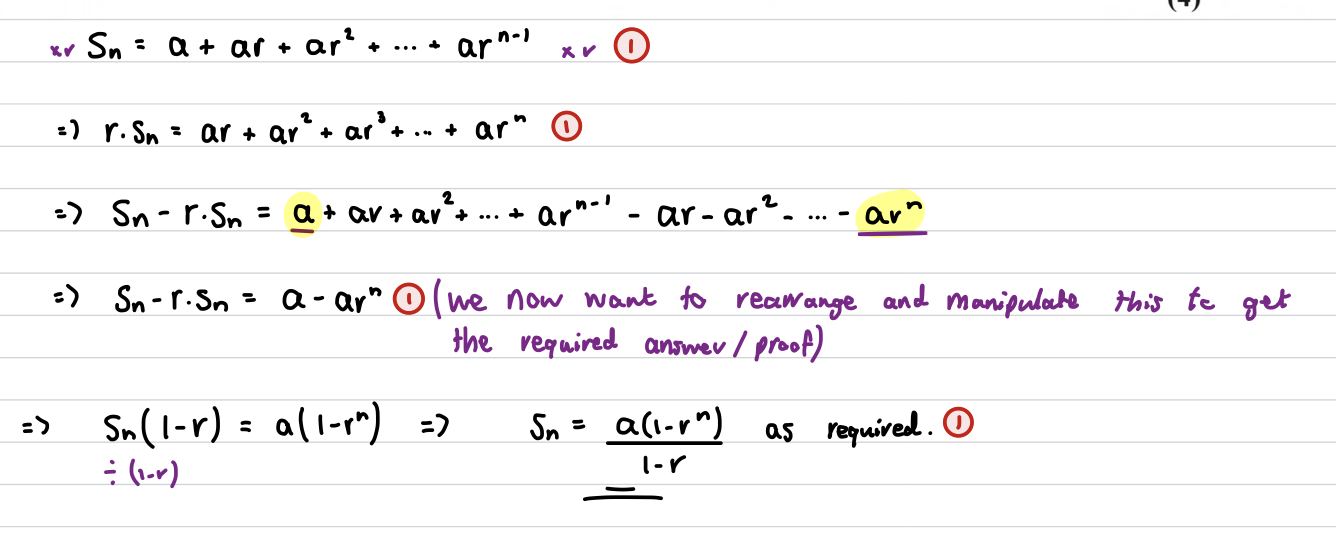 (4)
×r Sn = a + ar + ar² + ... + arⁿ⁻¹ ×r ①
=> r.Sn = ar + ar² + ar³ + ... + arⁿ ①
=> Sn - r.Sn = a + ar + ar² + ... + arⁿ⁻¹ - ar - ar² - ... - arⁿ
=> Sn - r.Sn = a - arⁿ ① (we now want to rearrange and manipulate this to get
the required answer / proof)
=> Sn(1-r) = a(1-rⁿ) => Sn = a(1-rⁿ) as required. ①
÷ (1-r) 1-r